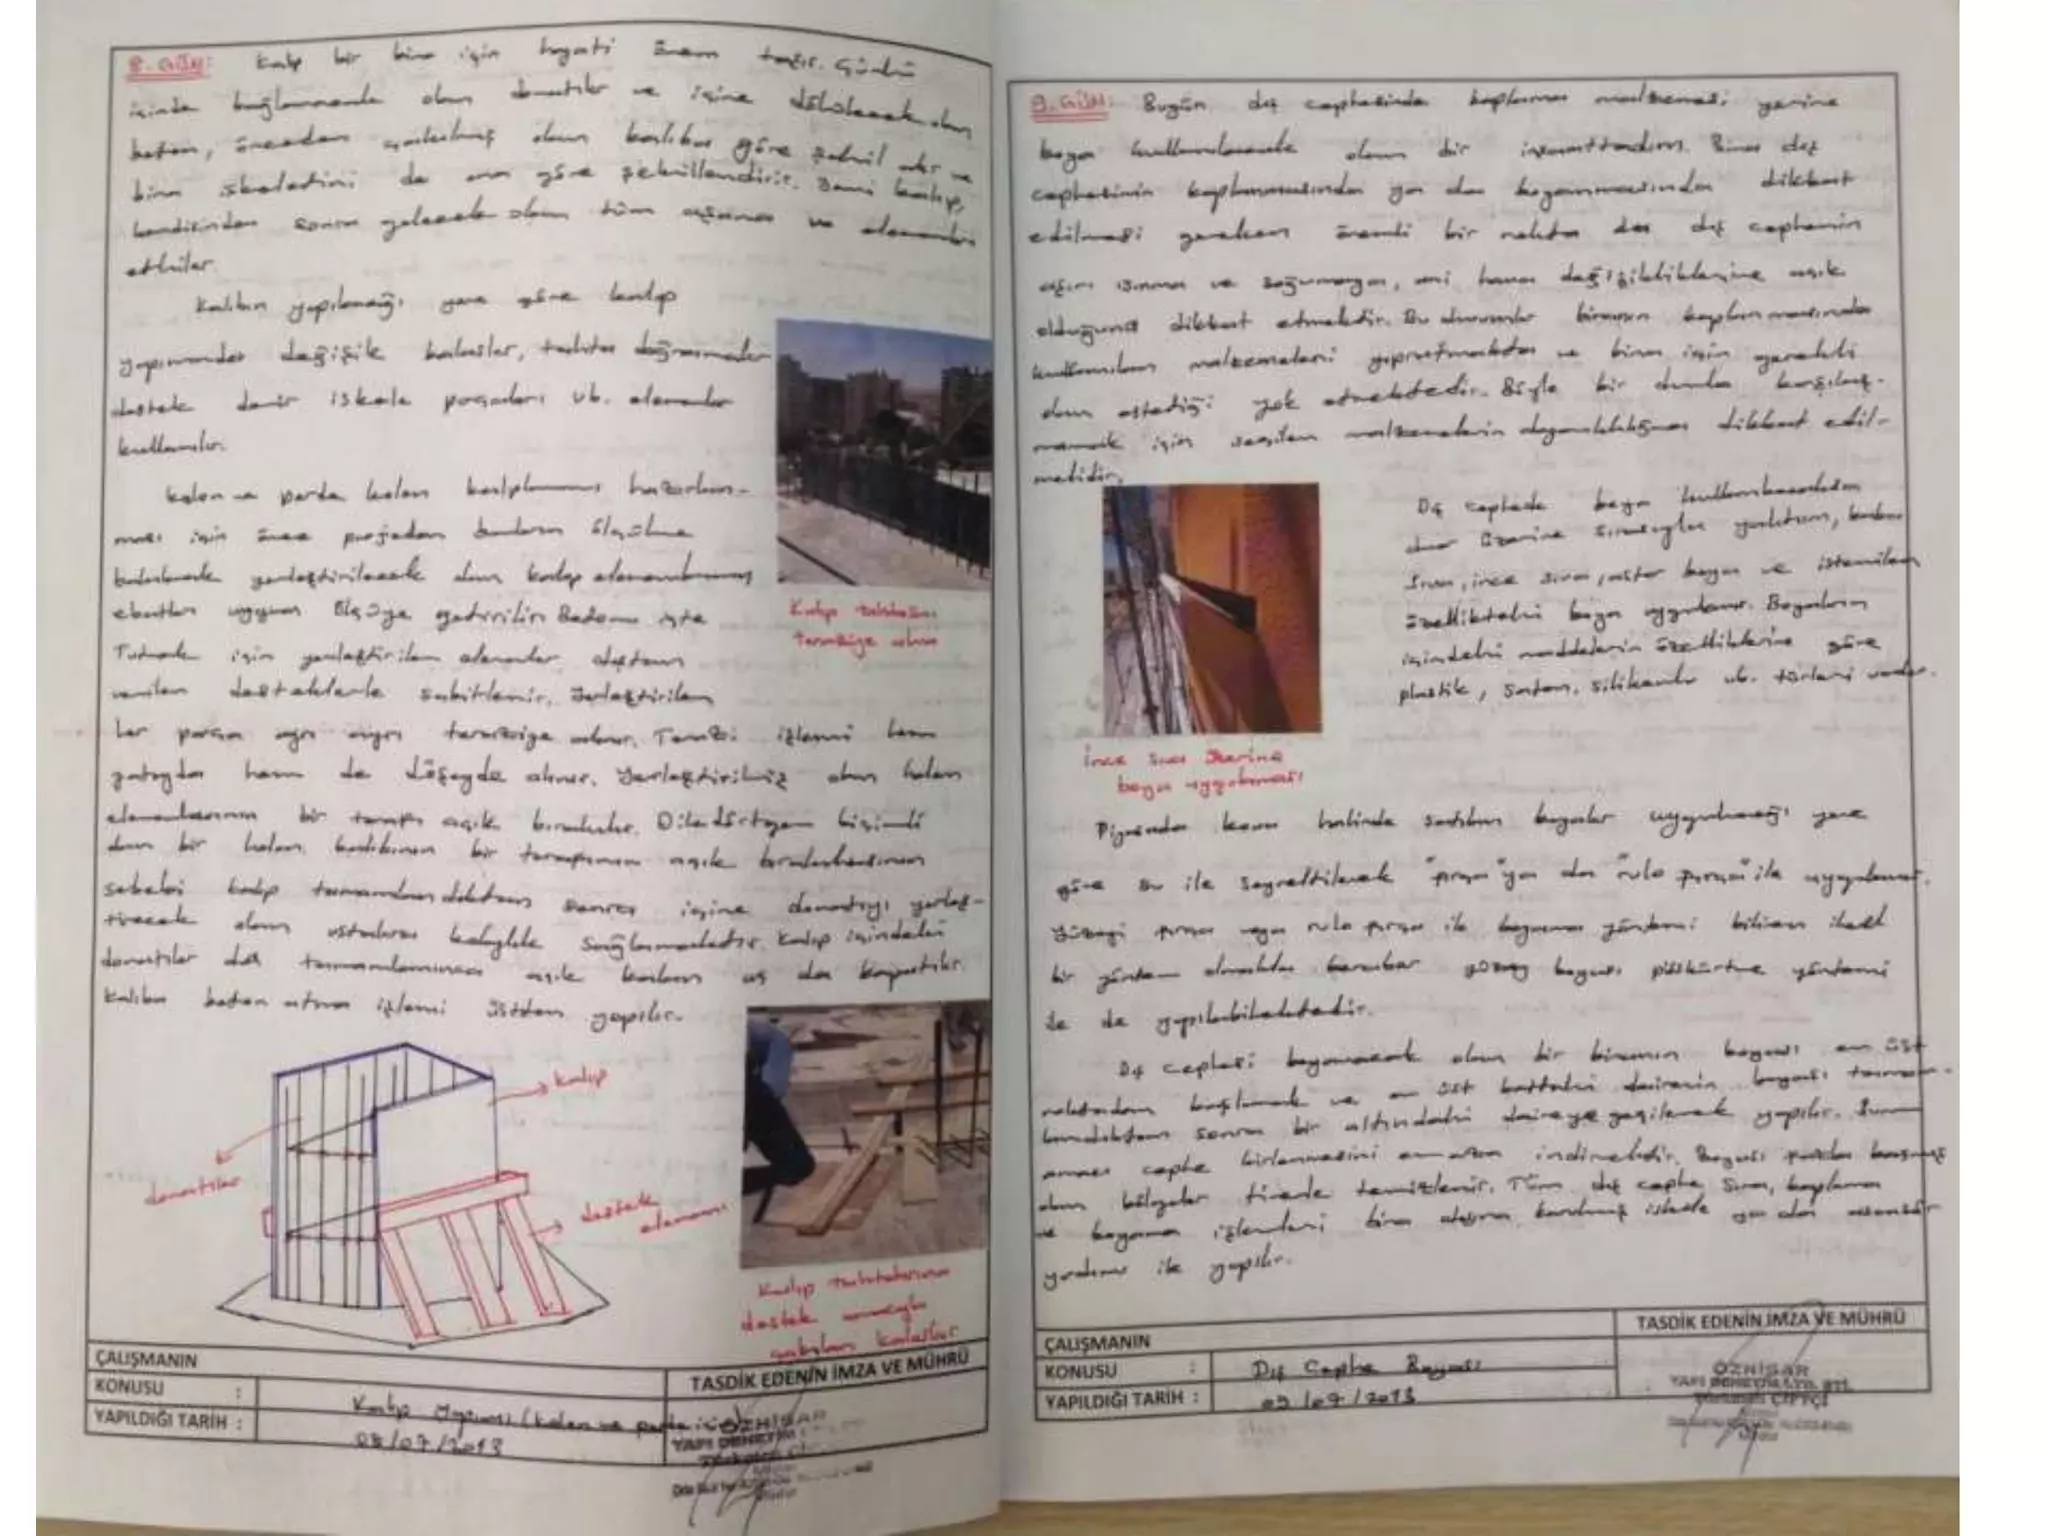 8. GÜN: Kalıp bir bina için hayati önem taşır. Çünkü
içinde bağlanmada olan donatılar ve içine dökülecek olan
beton, önceden çakılmış olan kalıba göre şekil alır ve
bina iskeletini de ona göre şekillendirir. Yani kalıp,
kendisinden sonra gelecek olan tüm aşama ve elemanları
etkiler.
Kalıbın yapılacağı yere göre kalıp
yapımında değişik kalaslar, tahta doğramalar
destek demir iskele parçaları vb. elemanlar
kullanılır.
Kolon ve perde kolon kalıplarının hazırlan-
ması için önce projeden bunların ölçülme
bakılarak yerleştirilecek olan kalıp elemanlarının
ebatları uygun ölçüye getirilir. Betonu
Tutmak için yerleştirilen elemanlar dıştan
verilen desteklerle sabitlenir. Yerleştirilen
her parça ayrı ayrı teraziye alınır. Terazi işlemi hem
yatayda hem de düşeyde alınır. Yerleştirilmiş olan kolon
elemanlarının bir tarafı açık bırakılır. Dikdörtgen biçimli
olan bir kolon kalıbının bir tarafının açık bırakılmasının
sebebi kalıp tamamlandıktan sonra içine donatıyı yerleş-
tirecek olan ustalara kolaylık sağlamaktadır. Kalıp içindeki
donatılar da tamamlanınca açık kalan uç da kapatılır.
Kalıba beton atma işlemi üstten yapılır.
Kalıp tahtaları
teraziye alma
kalıp
donatılar
destek
elemanı
Kalıp tahtalarına
destek amaçlı
çakılan kalaslar
ÇALIŞMANIN
TASDİK EDENİN İMZA VE MÜHRÜ
KONUSU : Kalıp Yapımı (kolon ve perde için)
YAPILDIĞI TARİH : 08/07/2013
ÖZHİSAR
YAPI DENETİM
9. GÜN: Bugün dış cephesinde kaplama malzemesi yerine
boya kullanılacak olan bir inşaattaydım. Bina dış
cephesinin kaplanmasında ya da boyanmasında dikkat
edilmesi gereken önemli bir nokta da dış cephenin
aşırı ısınma ve soğumaya, ani hava değişikliklerine açık
olduğuna dikkat etmektir. Bu durumlar binanın kaplanmasında
kullanılan malzemeleri yıpratmakta ve bina için gerekli
olan estetiği yok etmektedir. Böyle bir durumla karşılaş-
mamak için seçilen malzemelerin dayanıklılığına dikkat edil-
melidir.
Dış cephede boya kullanılacaksa
duvar üzerine sırasıyla yalıtım, kaba
sıva, ince sıva, astar boya ve istenilen
özellikteki boya uygulanır. Boyaların
içindeki maddelerin özelliklerine göre
plastik, saten, silikonlu vb. türleri vardır.
İnce sıva üzerine
boya uygulaması
Piyasada kova halinde satılan boyalar uygulanacağı yere
göre su ile seyreltilerek "fırça" ya da "rulo fırça" ile uygulanır.
Yüzeyi fırça veya rulo fırça ile boyama yöntemi bilinen ilkel
bir yöntem olmakla beraber yüzey boyası püskürtme yöntemi
ile de yapılabilmektedir.
Dış cephesi boyanacak olan bir binanın boyası en üst
noktadan başlanarak ve en üst kattaki dairenin boyası tamam-
landıktan sonra bir altındaki daireye geçilerek yapılır. Bunun
amacı cephe kirlenmesini en aza indirmektir. Boyası
olan bölgeler tinerle temizlenir. Tüm dış cephe sıva, kaplama
ve boyama işlemleri bina dışına kurulmuş iskele ya da asansör
yardımı ile yapılır.
ÇALIŞMANIN
TASDİK EDENİN İMZA VE MÜHRÜ
KONUSU : Dış Cephe Boyası
YAPILDIĞI TARİH : 09/07/2013
ÖZHİSAR
YAPI DENETİM LTD. ŞTİ.
ÇİFTÇİ